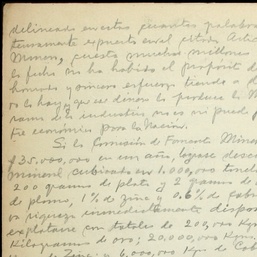 delineado en estas cuantas palabras
tensamente expuesto en el citado Artí
Minero, cuesta muchos millones
la fecha no ha habido el propósito d
honrado y sincero esfuerzo tiende a
o lo hay y que ser denos lo produce la M
rama de la industria no es ni pued
fre económica para la Nación.
Si la Comisión de Fomento Miner
$35.000,000 en un año, logase desc
mineral cubicado en 1.000,000 tonela
200 gramos de plata y 2 gramos de
de plomo, 1% de zinc y 0.6% de cobr
va riqueza inmediatamente dispon
explotarse con totales de 200,000 Kgr
Kilogramos de oro; 20.000,000 Kgm
de Zinc y 6,000,000 Kgs de Cob